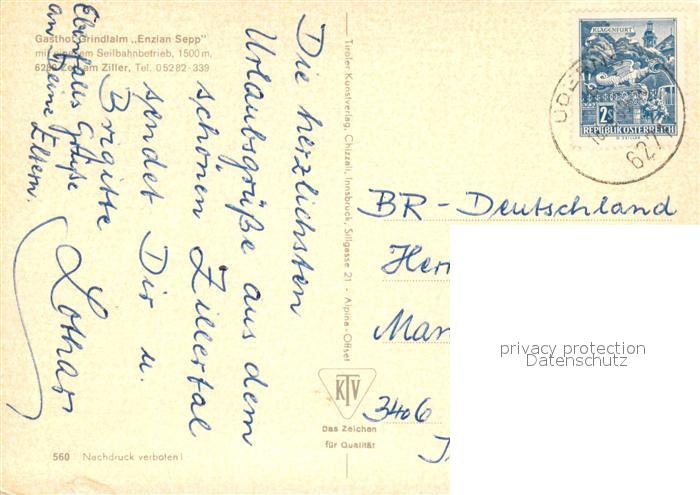 Gasthof Grindlalm „Enzian Sepp"
mit eigenem Seilbahnbetrieb, 1500 m,
6280 Zell am Ziller, Tel. 05282-339
Die herzlichsten
Urlaubsgrüße aus dem
schönen Zillertal
sendet Dir u.
Brigitte
Lothar
Ebenfalls Grüße
an Deine Eltern.
560 Nachdruck verboten!
Tiroler Kunstverlag, Chizzali, Innsbruck, Sillgasse 21 - Alpina-Offset
KTV
Das Zeichen
für Qualität
KLAGENFURT
2S
REPUBLIK ÖSTERREICH
UDERNS
627
BR-Deutschland
Herr
Man
3406
privacy protection
Datenschutz